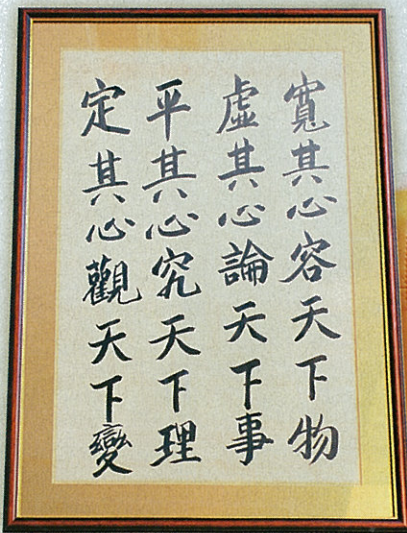 寬其心容天下物
虛其心論天下事
平其心究天下理
定其心觀天下變